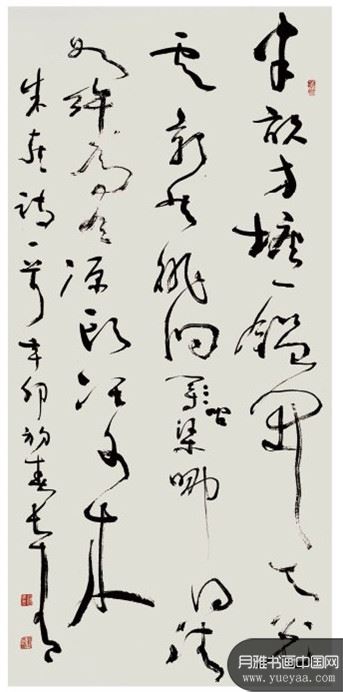 半畝方塘一鑑開天光
雲影共徘徊問渠哪得清
如許為有源頭活水來
朱熹詩一首辛卯初春
月雅书画中国网
www.yueyaa.com